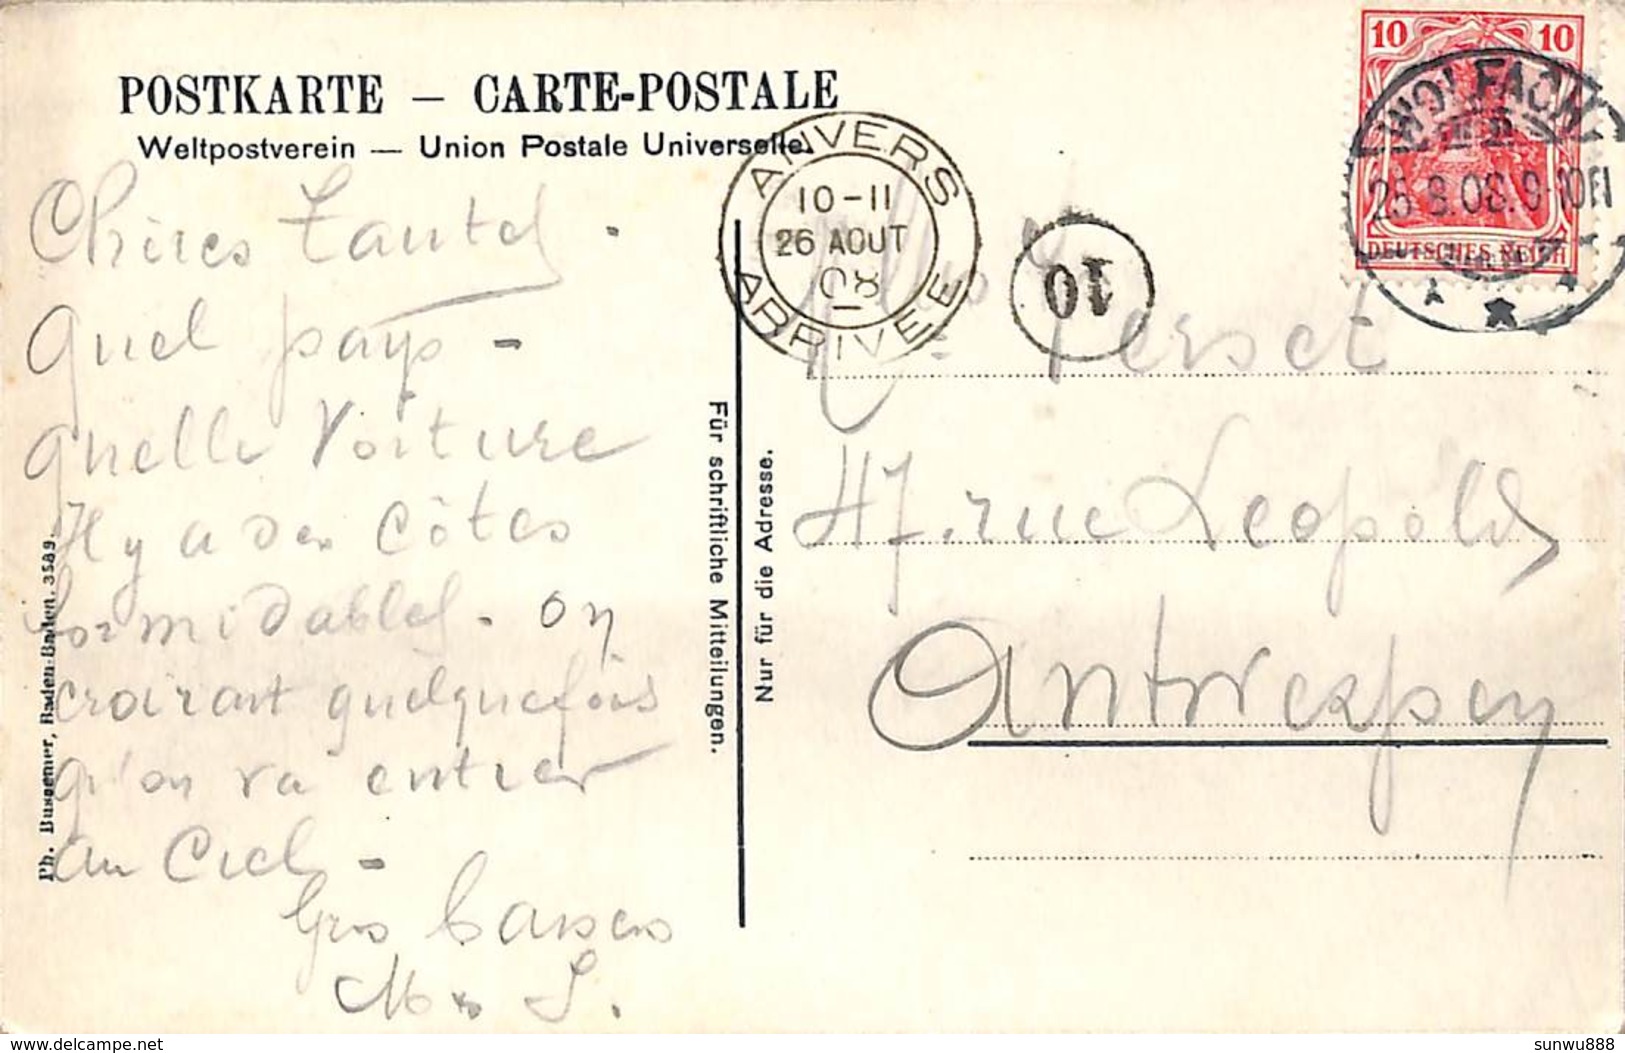 POSTKARTE — CARTE-POSTALE
Weltpostverein — Union Postale Universelle.
Chères Tantes.
Quel pays -
quelle Voiture
Il y a des côtes
formidables. on
croirait quelquefois
qu'on va entrer
au Ciel -
Gros baisers
M. S.
Ph. Bussemer, Baden-Baden. 3589.
Für schriftliche Mitteilungen.
Nur für die Adresse.
ANVERS
10-11
26 AOUT
08
ARRIVEE
10
10 10
DEUTSCHES REICH
WOLFACH
25.8.08.9-10N
Mlles Perset
47. rue Léopold,
Antwerpen
delcampe.net
sunwu888